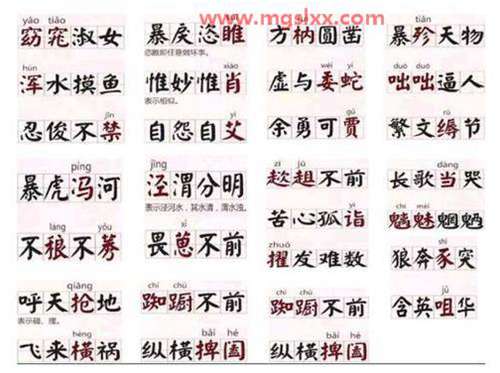 www.mgslxx.com
yǎo tiǎo
窈窕淑女
hún
浑水摸鱼
jīn
忍俊不禁
píng
暴虎冯河
láng yǒu
不稂不莠
qiāng
呼天抢地
表示碰、撞。
hèng
飞来横祸
suī
暴戾恣睢
恣睢即任意做坏事。
xiào
惟妙惟肖
表示相似。
yì
自怨自艾
jīng
泾渭分明
表示泾河水,其水清,渭水浊。
xǐ
畏葸不前
chí chú
踟蹰不前
bǎi hé
纵横捭阖
ruì
方枘圆凿
wēi yí
虚与委蛇
gǔ
余勇可贾
zī jū
趑趄不前
yì
苦心孤诣
zhuó
擢发难数
chí chú
踟蹰不前
bǎi hé
纵横捭阖
tiǎn
暴殄天物
duō duō
咄咄逼人
rù
繁文缛节
dàng
长歌当哭
chī mèi
魑魅魍魉
shǐ
狼奔豕突
jǔ
含英咀华